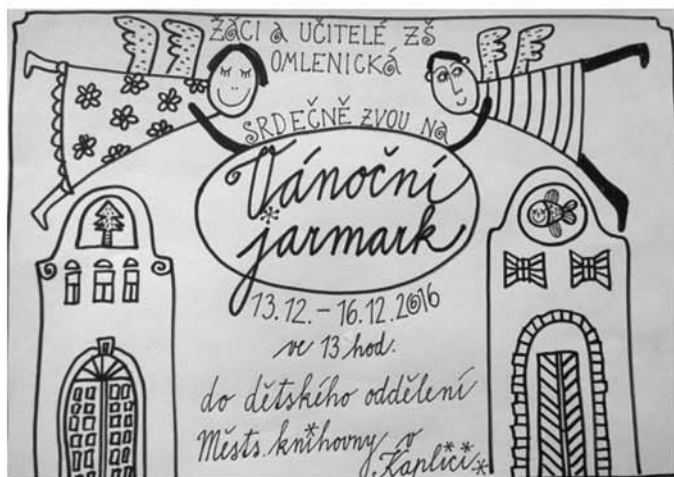 ŽÁCI a UČITELÉ ZŠ
OMLENICKÁ
SRDEČNĚ ZVOU NA
Vánoční
jarmark
13.12. – 16.12.2016
ve 13 hod.
do dětského oddělení
Městs. knihovny v
Kaplici